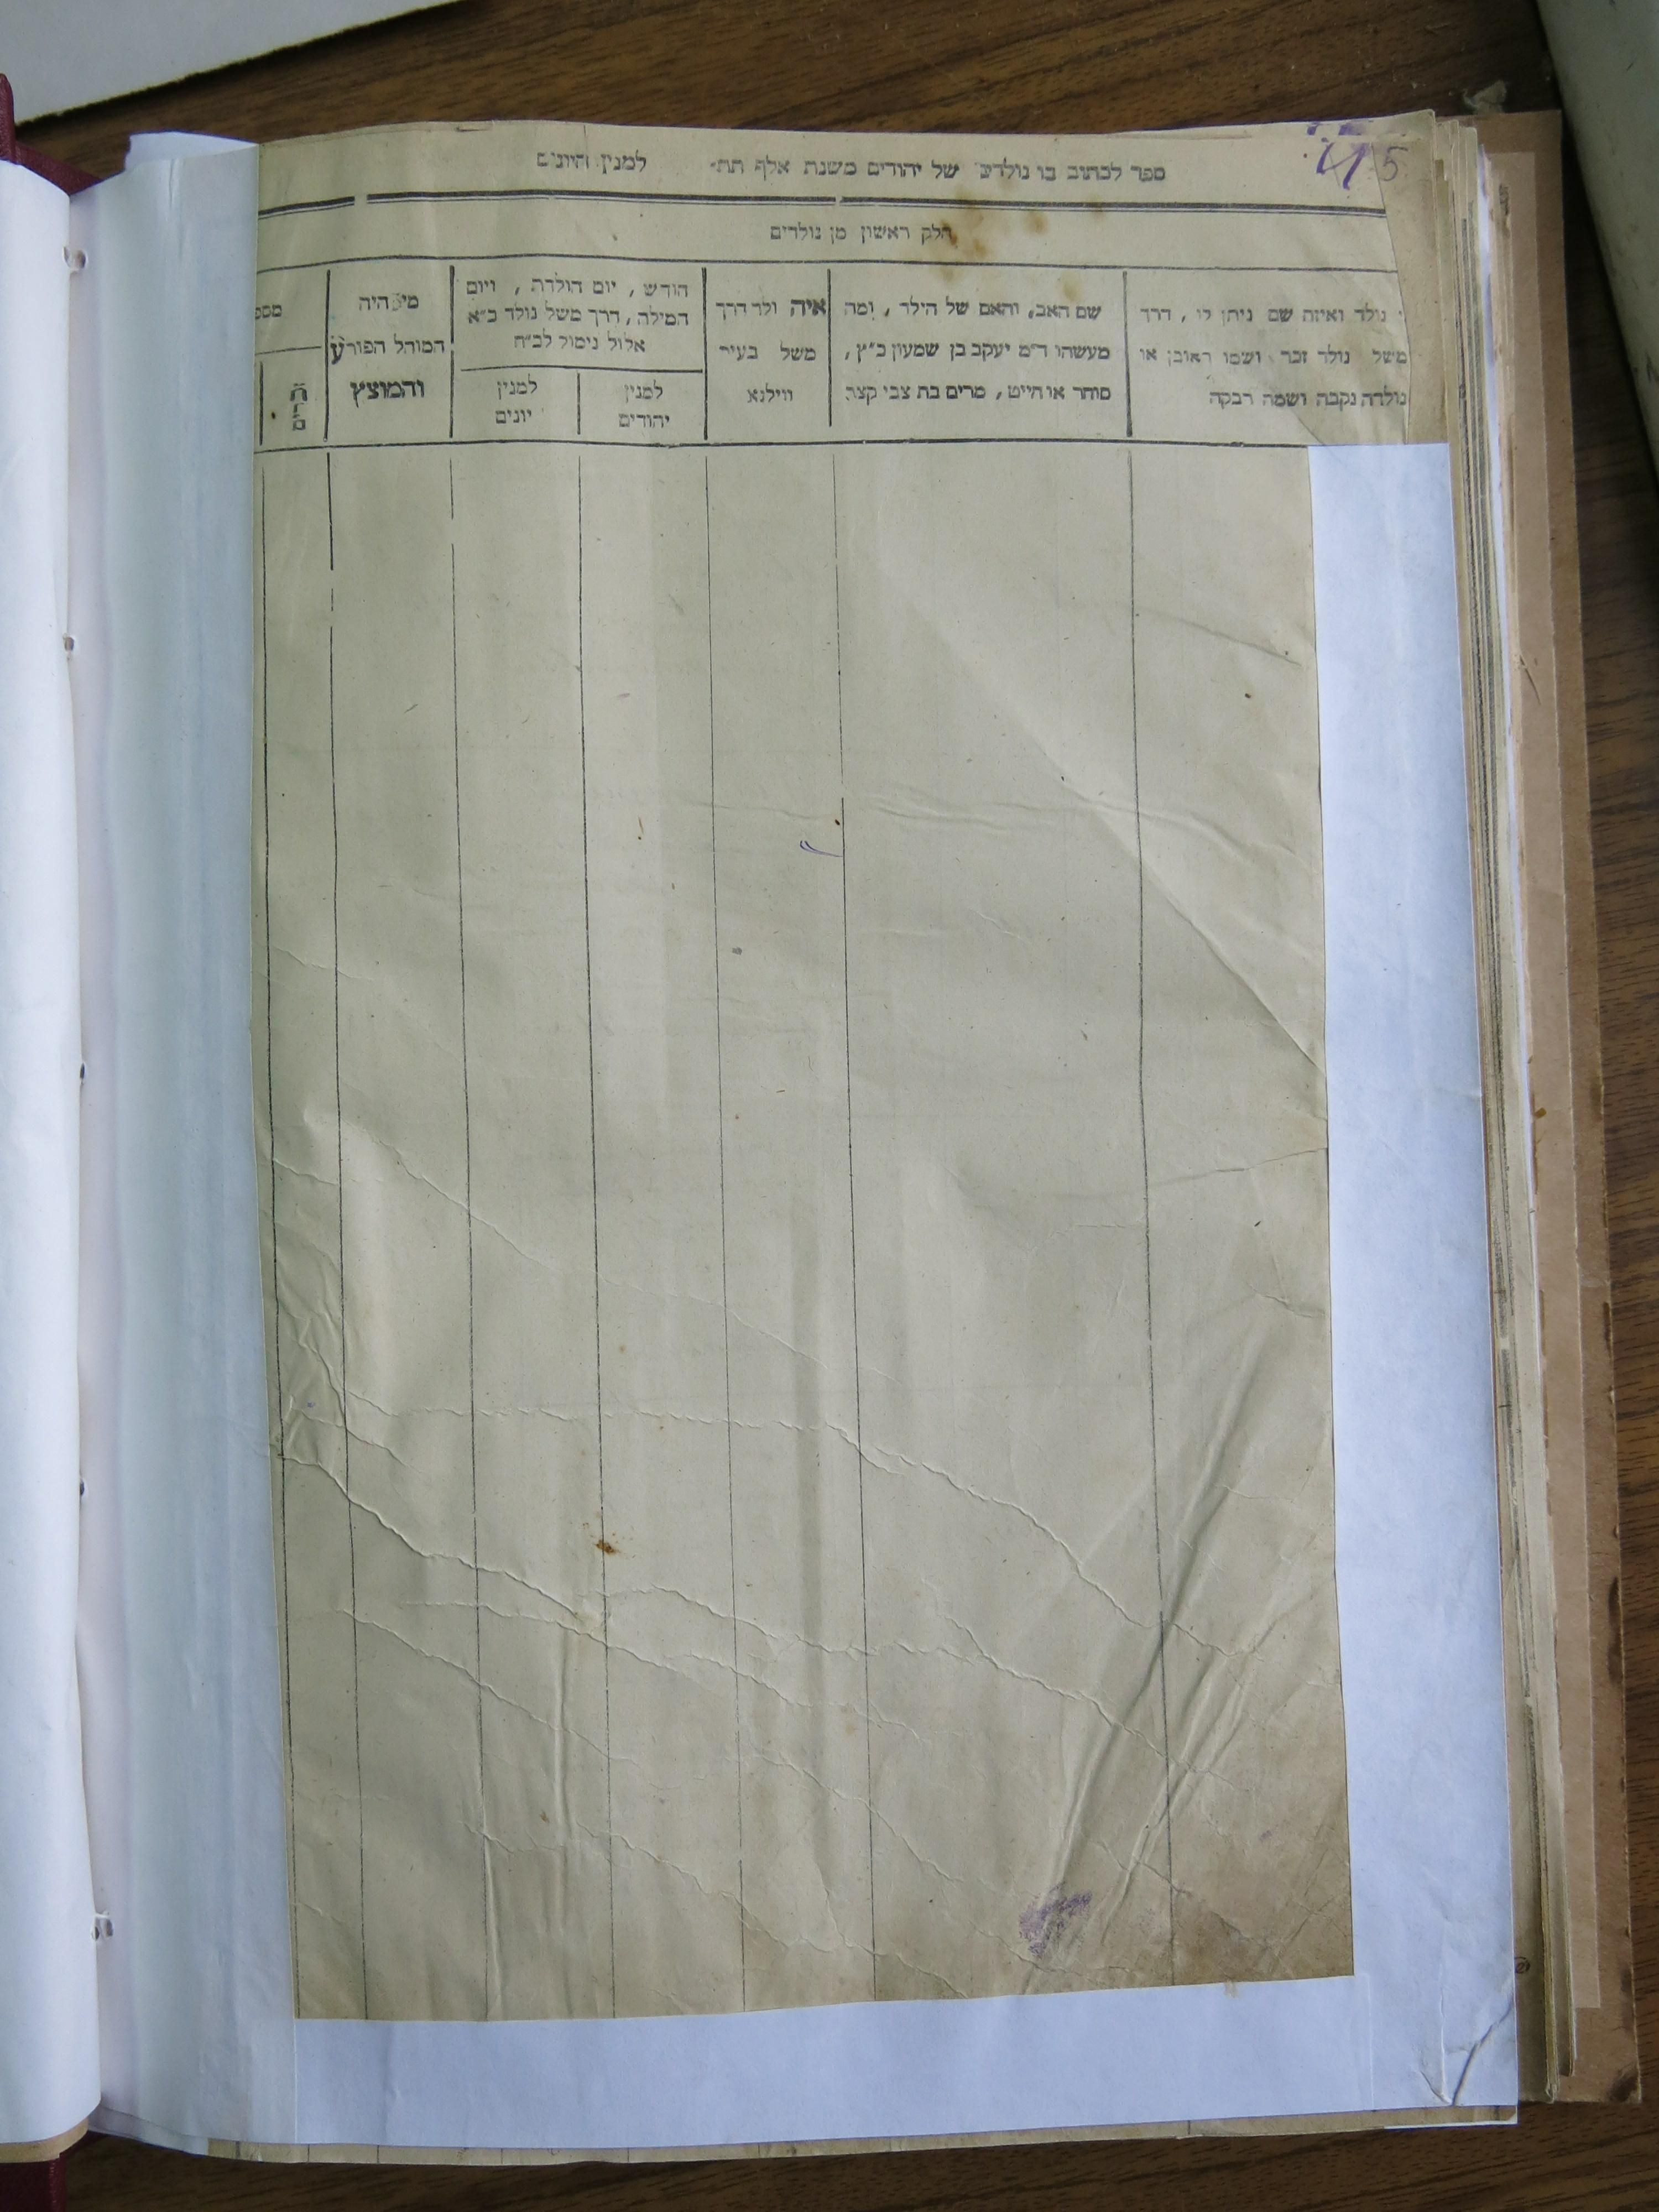 15
ספר לכתוב בו נולדים של יהודים משנת אלף תת״ למנין היונים
חלק ראשון מן נולדים
נולד ואיזה שם ניתן לו, דרך
משל נולד זכר ושמו ראובן או
נולדה נקבה ושמה רבקה
שם האב, והאם של הילד, ומה
מעשהו ד״מ יעקב בן שמעון כ״ץ,
סוחר או חייט, מרים בת צבי קצב
איה ילד דרך
משל בעיר
ווילנא
חודש, יום הולדת, ויום
המילה, דרך משל נולד כ״א
אלול נימול לכ״ח
למנין
יהודים
למנין
יונים
מי היה
המוהל הפורע
והמוצץ
מספ
זכרים